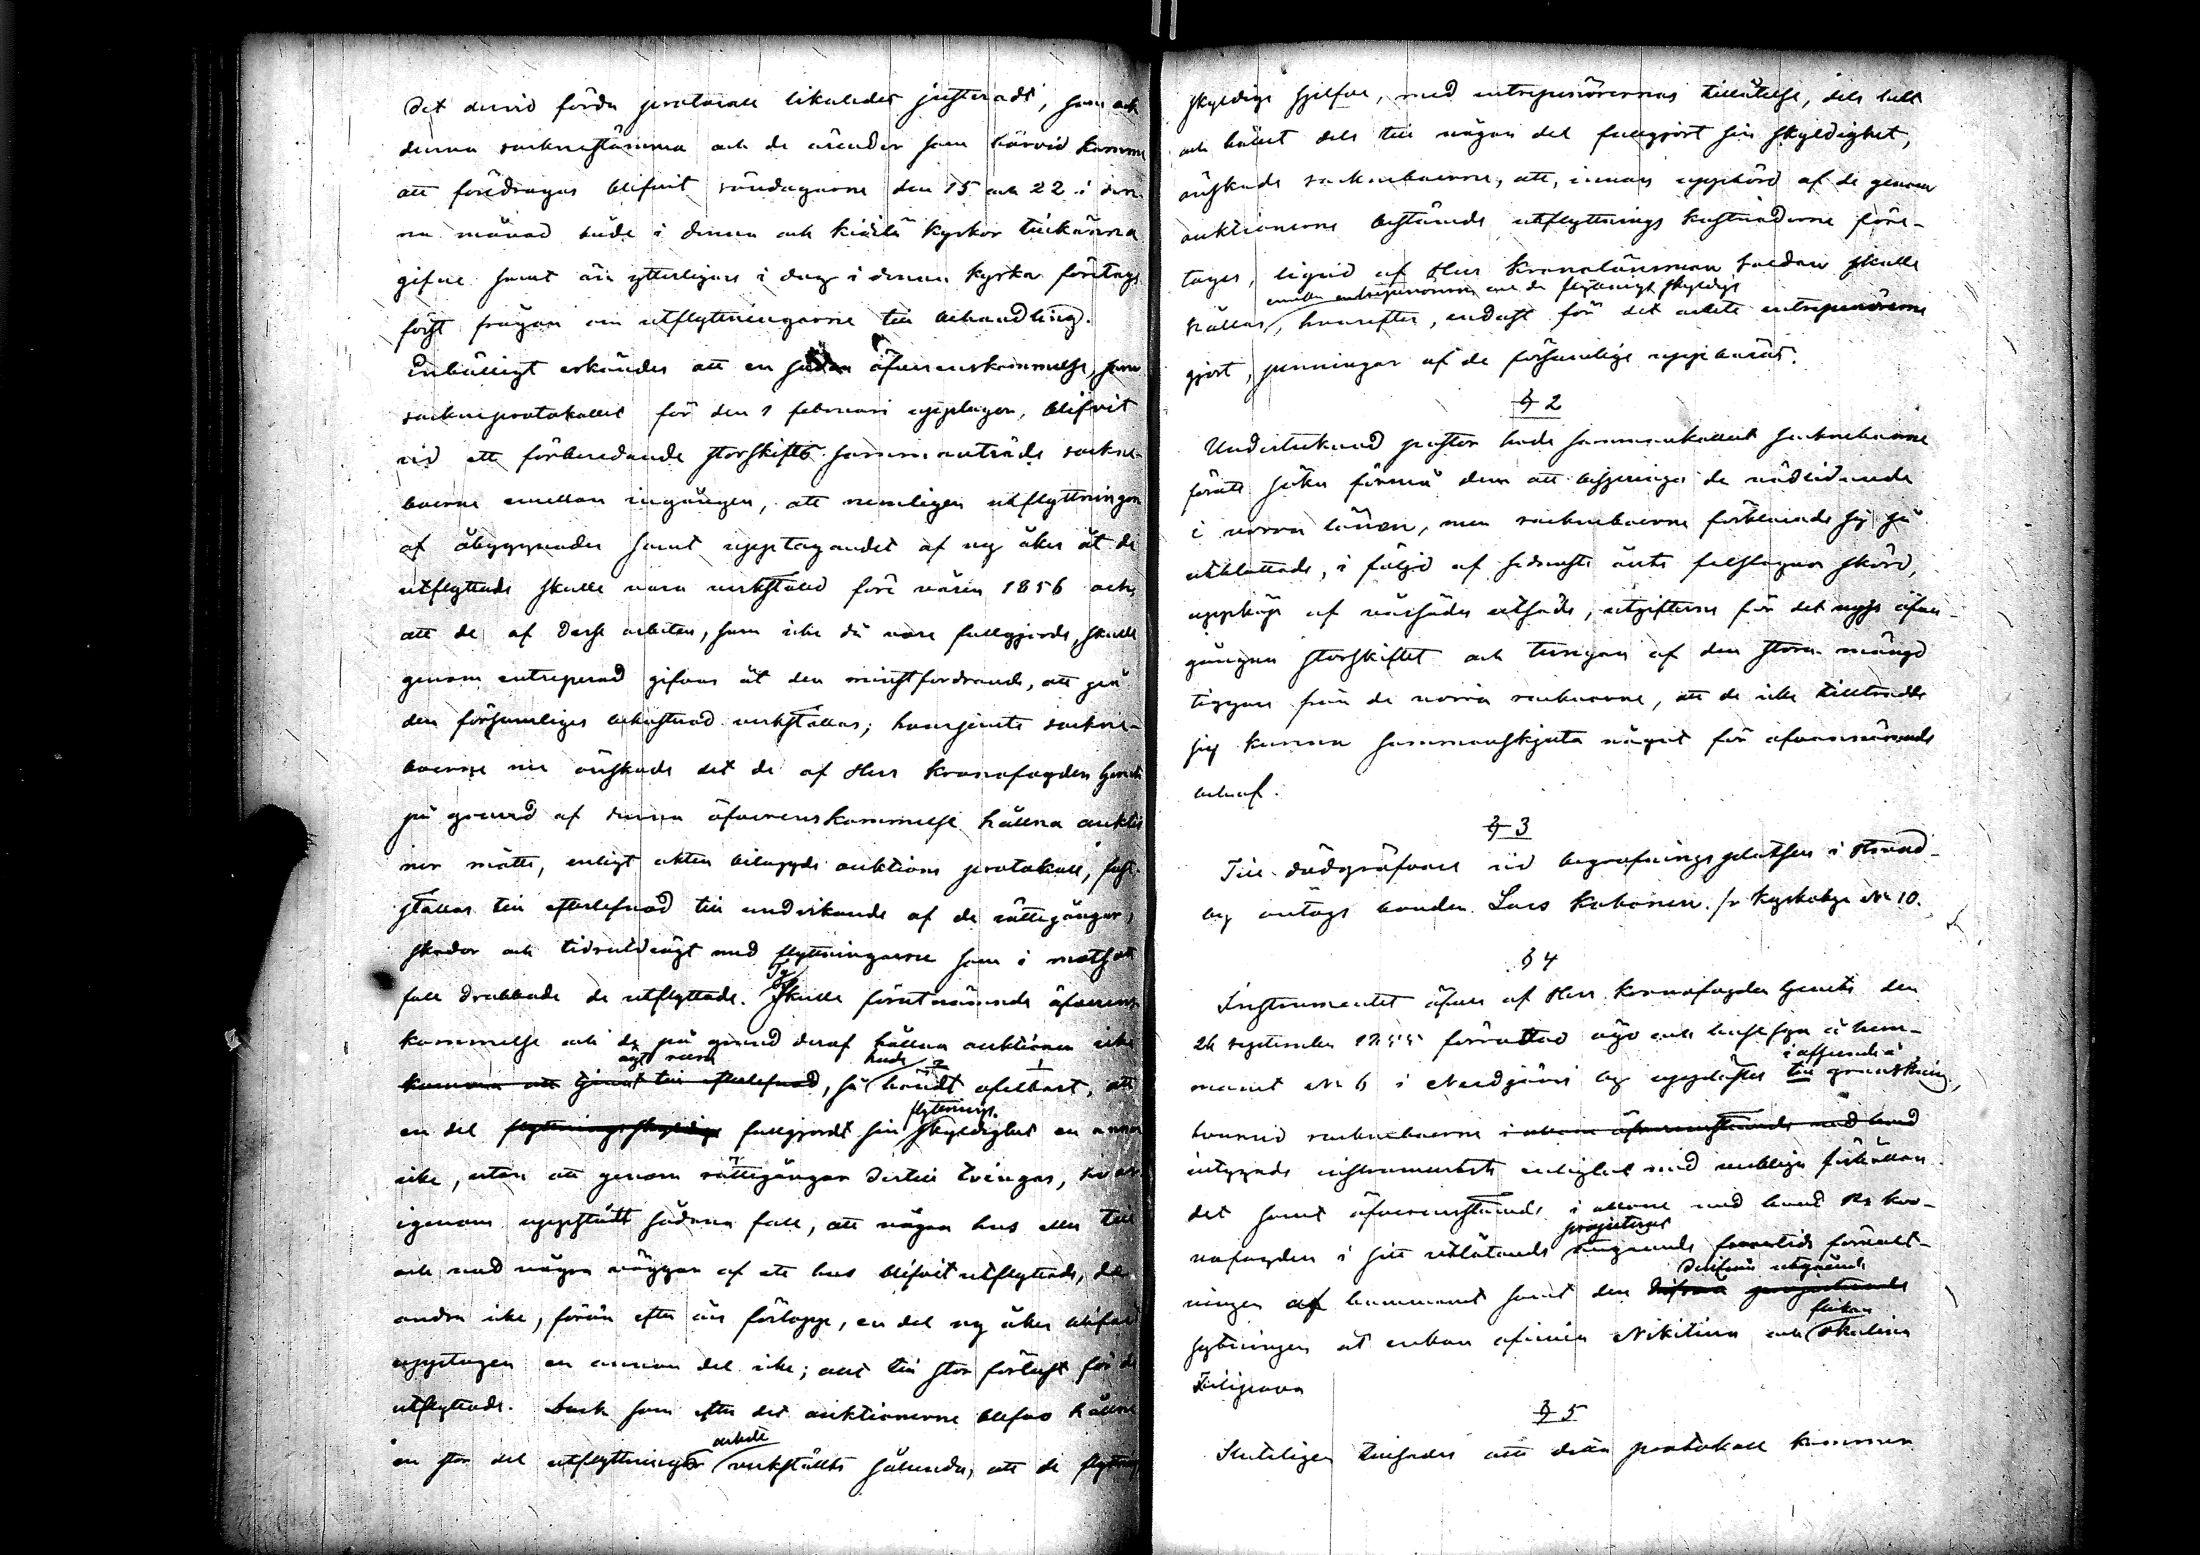 Det dervid förda protocoll likaledes justerades, som och
denna sockenstämma och de ärender som härvid komma
att föredragas blifvit söndagarne den 15 och 22 i den-
na månad både i denna och Kivilä kyrkor tillkänna
gifne samt än ytterligare i dag i denna kyrka företogs
först frågan om utflyttningarne till behandling.
Enhälligt erkändes att en sådan öfverenskommelse, som
sockneprotokollet för den 1 februari upptager, blifvit
vid ett förberedande storskifts sammanträde sockne-
boerne emellan ingången, att nemligen utflyttningen
af åbyggnader samt upptagandet af ny åker åt de
utflyttade skulle vara verkstäld före våren 1856 och
att de af dessa arbeten, som icke då voro fullgjorde, skulle
genom entreprenad gifvas åt den minstfordrande, att på
den försumliges bekostnad verkställas; hvarjemte sockne-
boerne nu önskade det de af Herr Kronofogden Genetz
på grund af denna öfverenskommelse hållna auktio
ner måtte, enligt akten bilagde auktions protokoll, fast-
ställas till efterlefnad till undvikande af de rättegångar,
skador och tidsuldrägt med flyttningarne som i motsatt
fall drabbade de utflyttade. Ty skulle förutnämnde öfverens-
kommelse och de på grund deraf hållna auktioner icke
ägt rum
komma att tjena till efterlefnad, så hade händt ofelbart, att
en del flyttningsskyldige fullgjordt sin flyttnings skyldighet en annan
icke, utan att genom rättegångar dertill tvingas,
igenom uppstått sådana fall, att någon hus eller till
och med några väggar af ett hus blifvit utflyttade, de
andra icke, förrän efter års förlopp, en del ny åker blifvit
upptagen en annan del icke; allt till stor förlust för de
utflyttade. Dock som efter det auktionerne blefvo hållne
en stor del utflyttnings arbete verkstälts sålunda, att de flyttnings
skyldige sjelfve, med entreprenörernas tillåtelse, dels helt
och hållet dels till någon del fullgjort sin skyldighet,
önskade sockneboerne, att, innan uppbörd af de genom
auktionerne bestämde utflyttnings kostnaderne före-
tages, liqvid af Herr Kronolänsman skulle
emellan entreprenörerne och de flyttnings skyldige
hållas, hvarefter, endast för det arbete entreprenörerne
gjort, penningar af de försumlige uppbäras.
§ 2
Undertecknad pastor hade sammankallat socknboerne
föratt söka förmå dem att bispringa de nödlidande
i norra länen, men socknboerne förklarade sig så
utblottade, i följd af sednaste årets felslagna skörd,
uppköp af vårsädes utsäde, utgifterne för det nyss öfver-
gångna storskiftet och tungan af den stora mängd
tiggare från de norra socknarne, att de icke tilltrodde
sig kunna sammanskjuta något för ofvannämnde
behof.
§ 3
Till dödgräfvare vid begrafningsplatsen i Strand-
by antogs bonden Lars Kokonen fr Kyrkoby No 10.
§ 4
Instrumentet öfver af Herr Kronofogden Genetz den
26 september 1855 förrättad ägo och husesyn å hem-
manet No 6 i Nerdjärvi by upplästes till i afseende å granskning,
hvarvid socknboerne i allone öfverensstämde med hvad
intygade instrumentets enlighet med verkliga förhållan
det samt öfverensstämde i allone med hvad Hr Kro-
nofogden i sitt utlåtande projecterat angående framtida förvalt-
ningen af hemmanet samt den derifrån utgående
sytningen åt enkan Nikitina och flickan
Filipova
§ 5
Slutligen tillsades att detta protokoll kommer